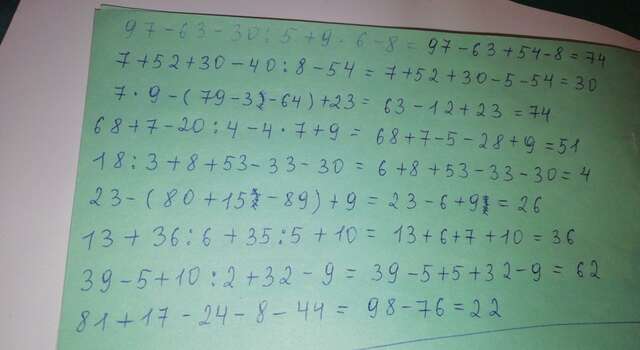 97-63-30:5+9·6-8=97-63+54-8=74
7+52+30-40:8-54=7+52+30-5-54=30
7·9-(79-3-64)+23=63-12+23=74
68+7-20:4-4·7+9=68+7-5-28+9=51
18:3+8+53-33-30=6+8+53-33-30=4
23-(80+15-89)+9=23-6+9=26
13+36:6+35:5+10=13+6+7+10=36
39-5+10:2+32-9=39-5+5+32-9=62
81+17-24-8-44=98-76=22